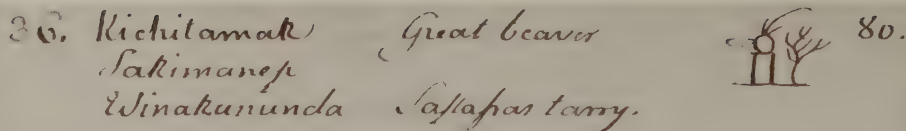 36. Kichitamak Great beaver 80.
Sakimanep
Winakununda Sassafras tarry.